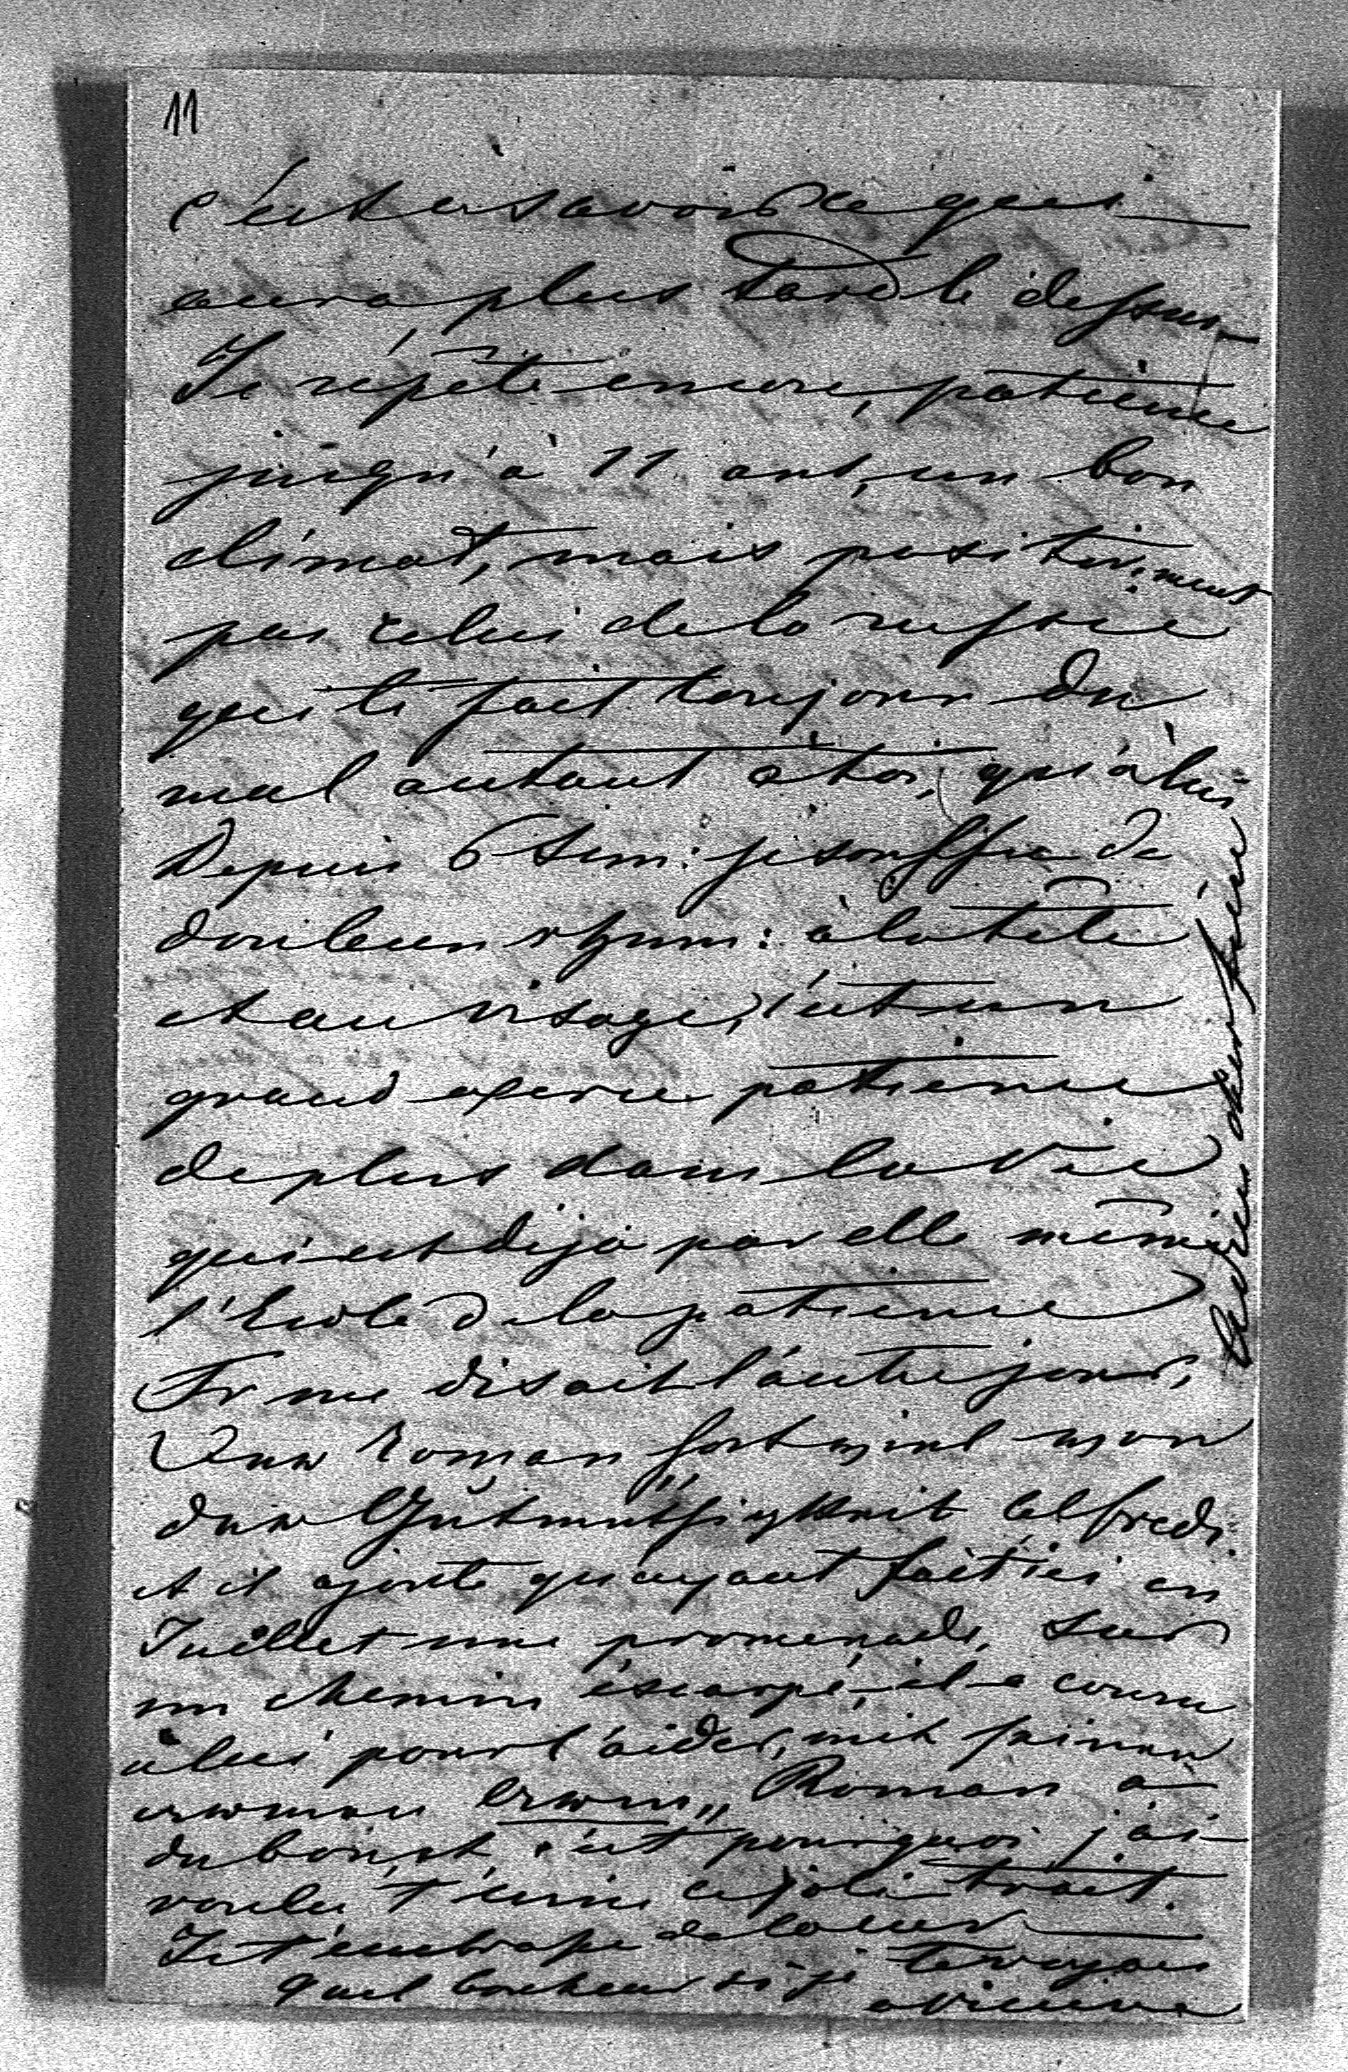 11
c'est à savoir ce qui
aura plus tard le dessus
Je répète encore, patience
jusqu'à 11 ans, un bon
climat, mais positivement
pas celui de la russie
qui te fait toujour du
mal autant à toi, qu'à lui
Depuis 6 Sem: je souffre de
douleur rhum: à la tête
et au visage, c'est un
grand exerce patience
de plus dans la vie
qui est déja par elle même
l'École de la patience
Fr me disait l'autre jour,
Roman
Alfreds.
et il ajoute qu'ayant fait ici en
Juillet une promenade, sur
un chemin éscarpé, il a couru
à lui pour l'aider, mit
Erwin" Roman a
du bon, et c'est pourquoi j'ai
voulu t'écrire ce joli trait.
Je t'embrasse de coeur
quel bonheur si je te voyais
a vienne